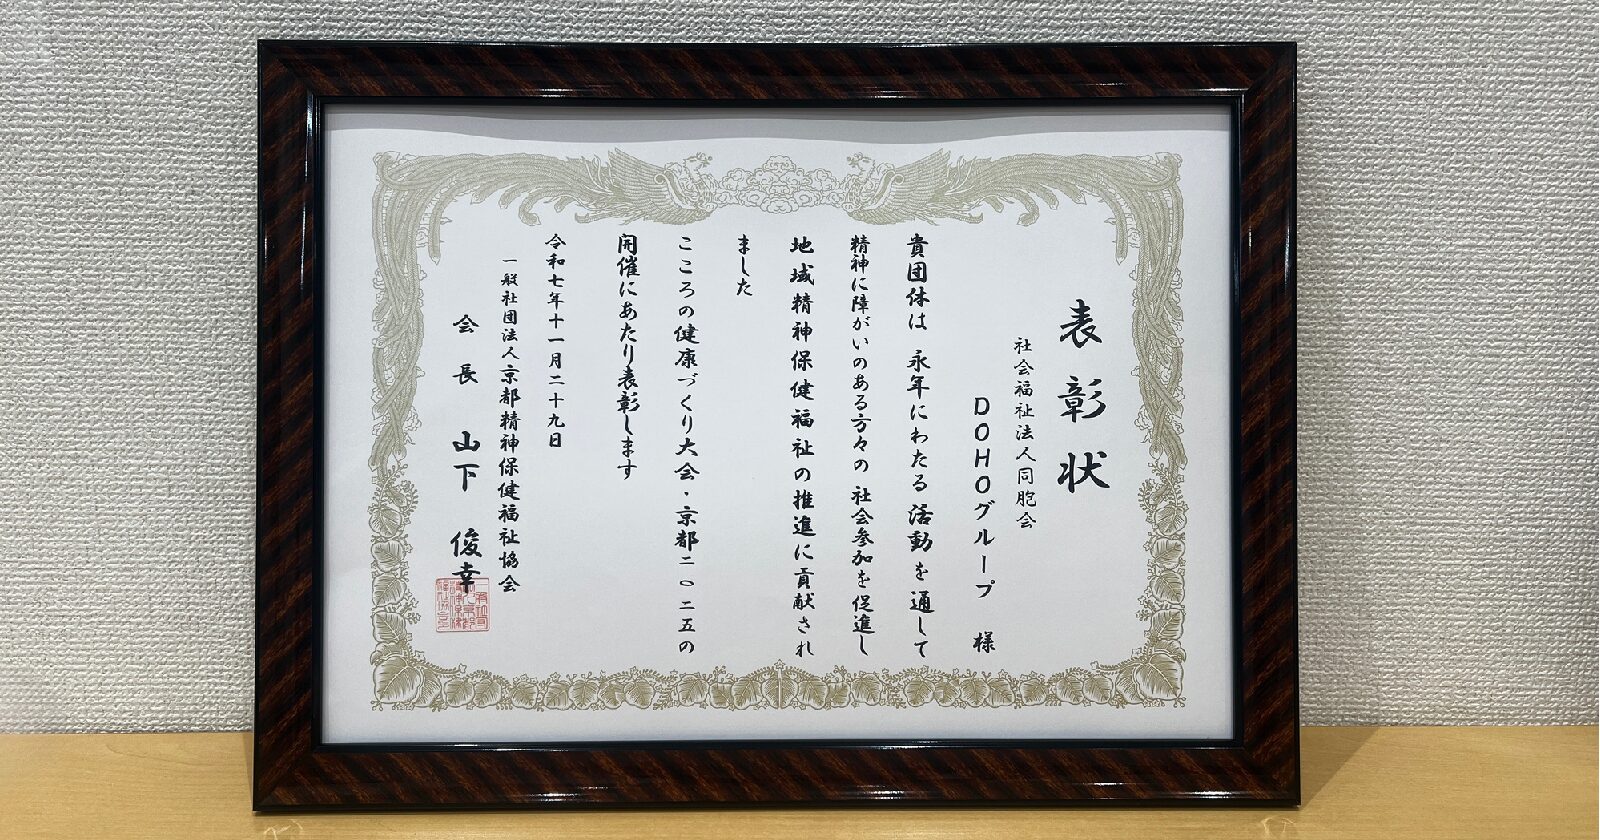 表彰状
社会福祉法人同胞会
DOHOグループ 様
貴団体は 永年にわたる 活動を通して
精神に障がいのある方々の 社会参加を促進し
地域精神保健福祉の推進に貢献され
ました
こころの健康づくり大会・京都二〇二五の
開催にあたり表彰します
令和七年十一月二十九日
一般社団法人京都精神保健福祉協会
会長 山下 俊幸